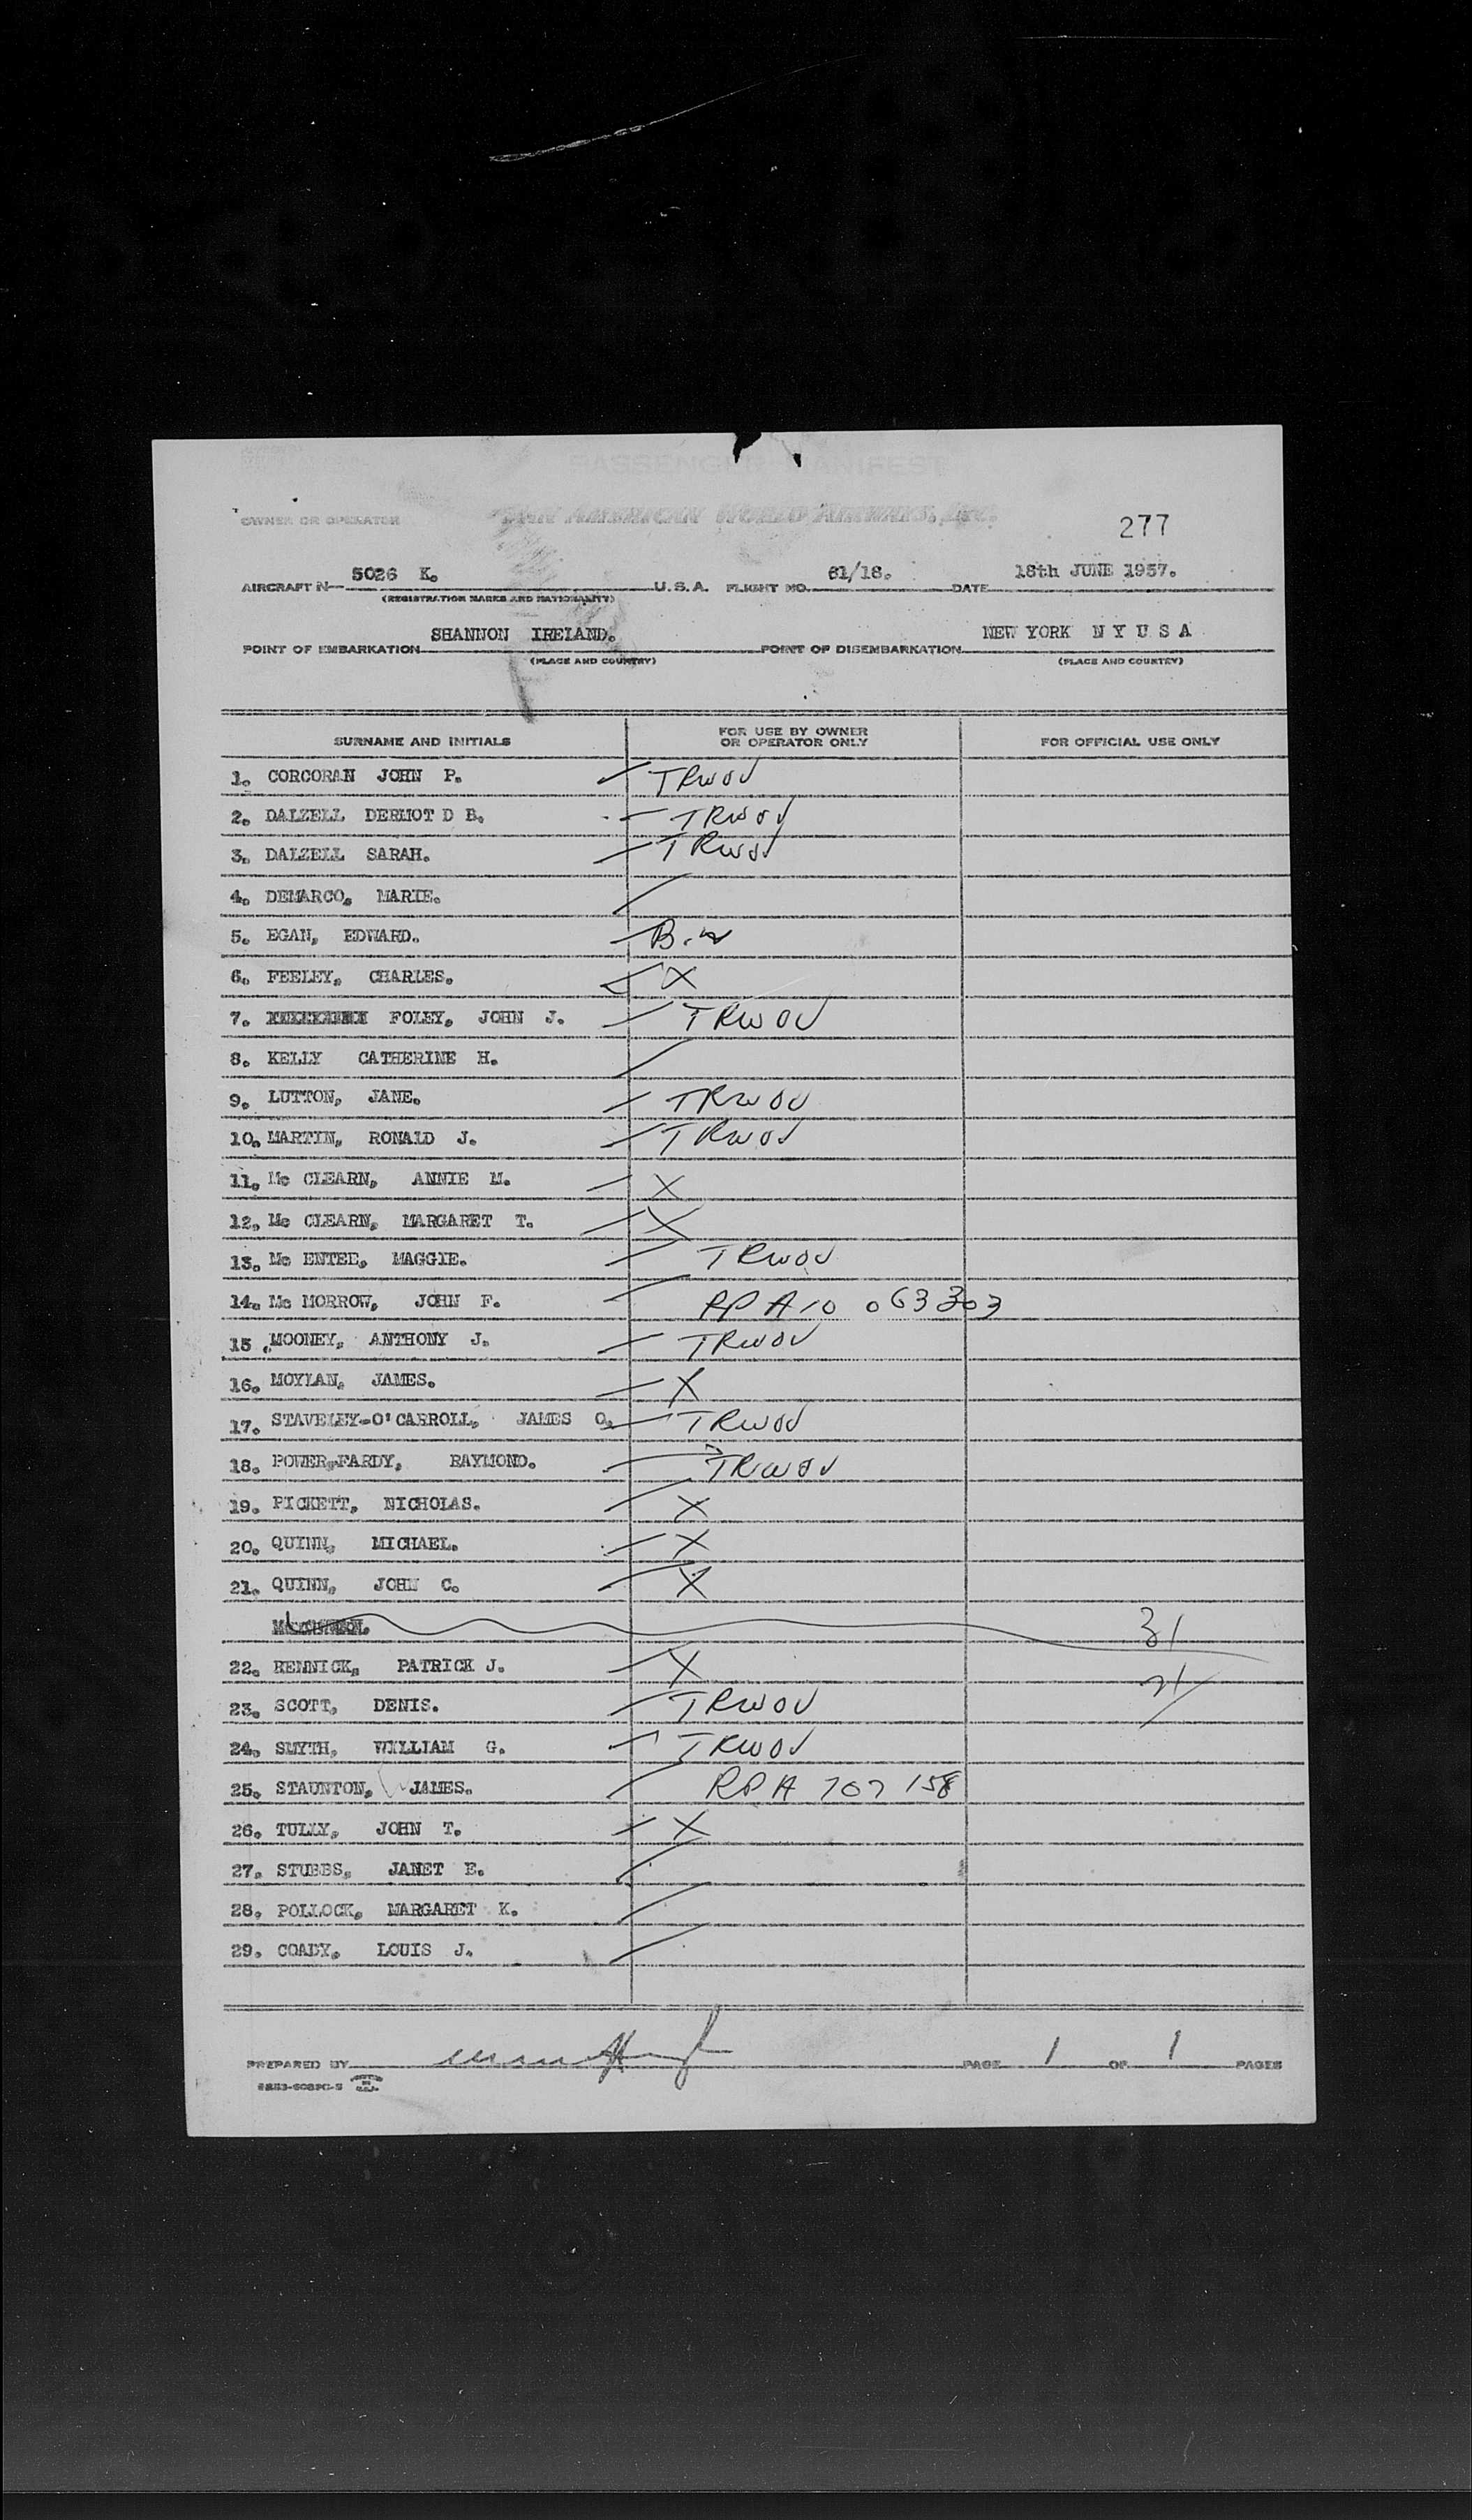 PASSENGER MANIFEST
OWNER OR OPERATOR PAN AMERICAN WORLD AIRWAYS, INC. 277
AIRCRAFT N— 5026 K. U.S.A. FLIGHT NO. 61/18. DATE 18th JUNE 1957.
(REGISTRATION MARKS AND NATIONALITY)
POINT OF EMBARKATION SHANNON IRELAND. POINT OF DISEMBARKATION NEW YORK N Y U S A
(PLACE AND COUNTRY) (PLACE AND COUNTRY)
SURNAME AND INITIALS FOR USE BY OWNER OR OPERATOR ONLY FOR OFFICIAL USE ONLY
1. CORCORAN JOHN P. TRWOV
2. DALZELL DERMOT D B. TRWOV
3. DALZELL SARAH. TRWOV
4. DEMARCO, MARIE.
5. EGAN, EDWARD.
6. FEELEY, CHARLES. X
7. FOLEY, JOHN J. TRWOV
8. KELLY CATHERINE H.
9. LUTTON, JANE. TRWOV
10. MARTIN, RONALD J. TRWOV
11. Mc CLEARN, ANNIE M. X
12. Mc CLEARN, MARGARET T. X
13. Mc ENTEE, MAGGIE. TRWOV
14. Mc MORROW, JOHN F. RP A10 063303
15. MOONEY, ANTHONY J. TRWOV
16. MOYLAN, JAMES. X
17. STAVELEY-O'CARROLL, JAMES O. TRWOV
18. POWER-FARDY, RAYMOND. TRWOV
19. PICKETT, NICHOLAS. X
20. QUINN, MICHAEL. X
21. QUINN, JOHN C. X
31
22. RENNICK, PATRICK J. X
23. SCOTT, DENIS. TRWOV
24. SMYTH, WILLIAM G. TRWOV
25. STAUNTON, JAMES. RPA 707 158
26. TULLY, JOHN T. X
27. STUBBS, JANET E.
28. POLLOCK, MARGARET K.
29. COADY, LOUIS J.
PREPARED BY PAGE 1 OF 1 PAGES